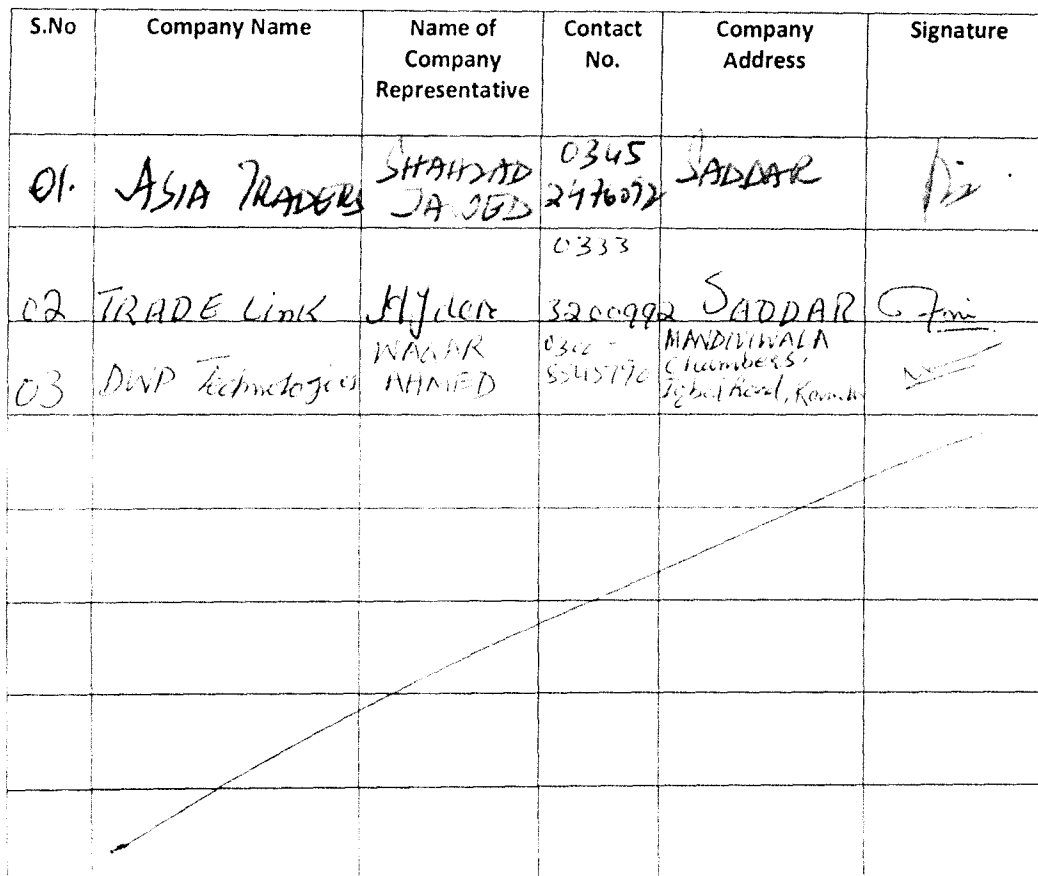 S.No Company Name Name of Company Representative Contact No. Company Address Signature
01. ASIA TRADERS SHAHZAD JAVED 0345 2476092 SADDAR
02 TRADE Link Hyder 0333 3200992 SADDAR
03 DWP Technologies WAQAR AHMED MANDIVIWALA Chambers, Iqbal Road,